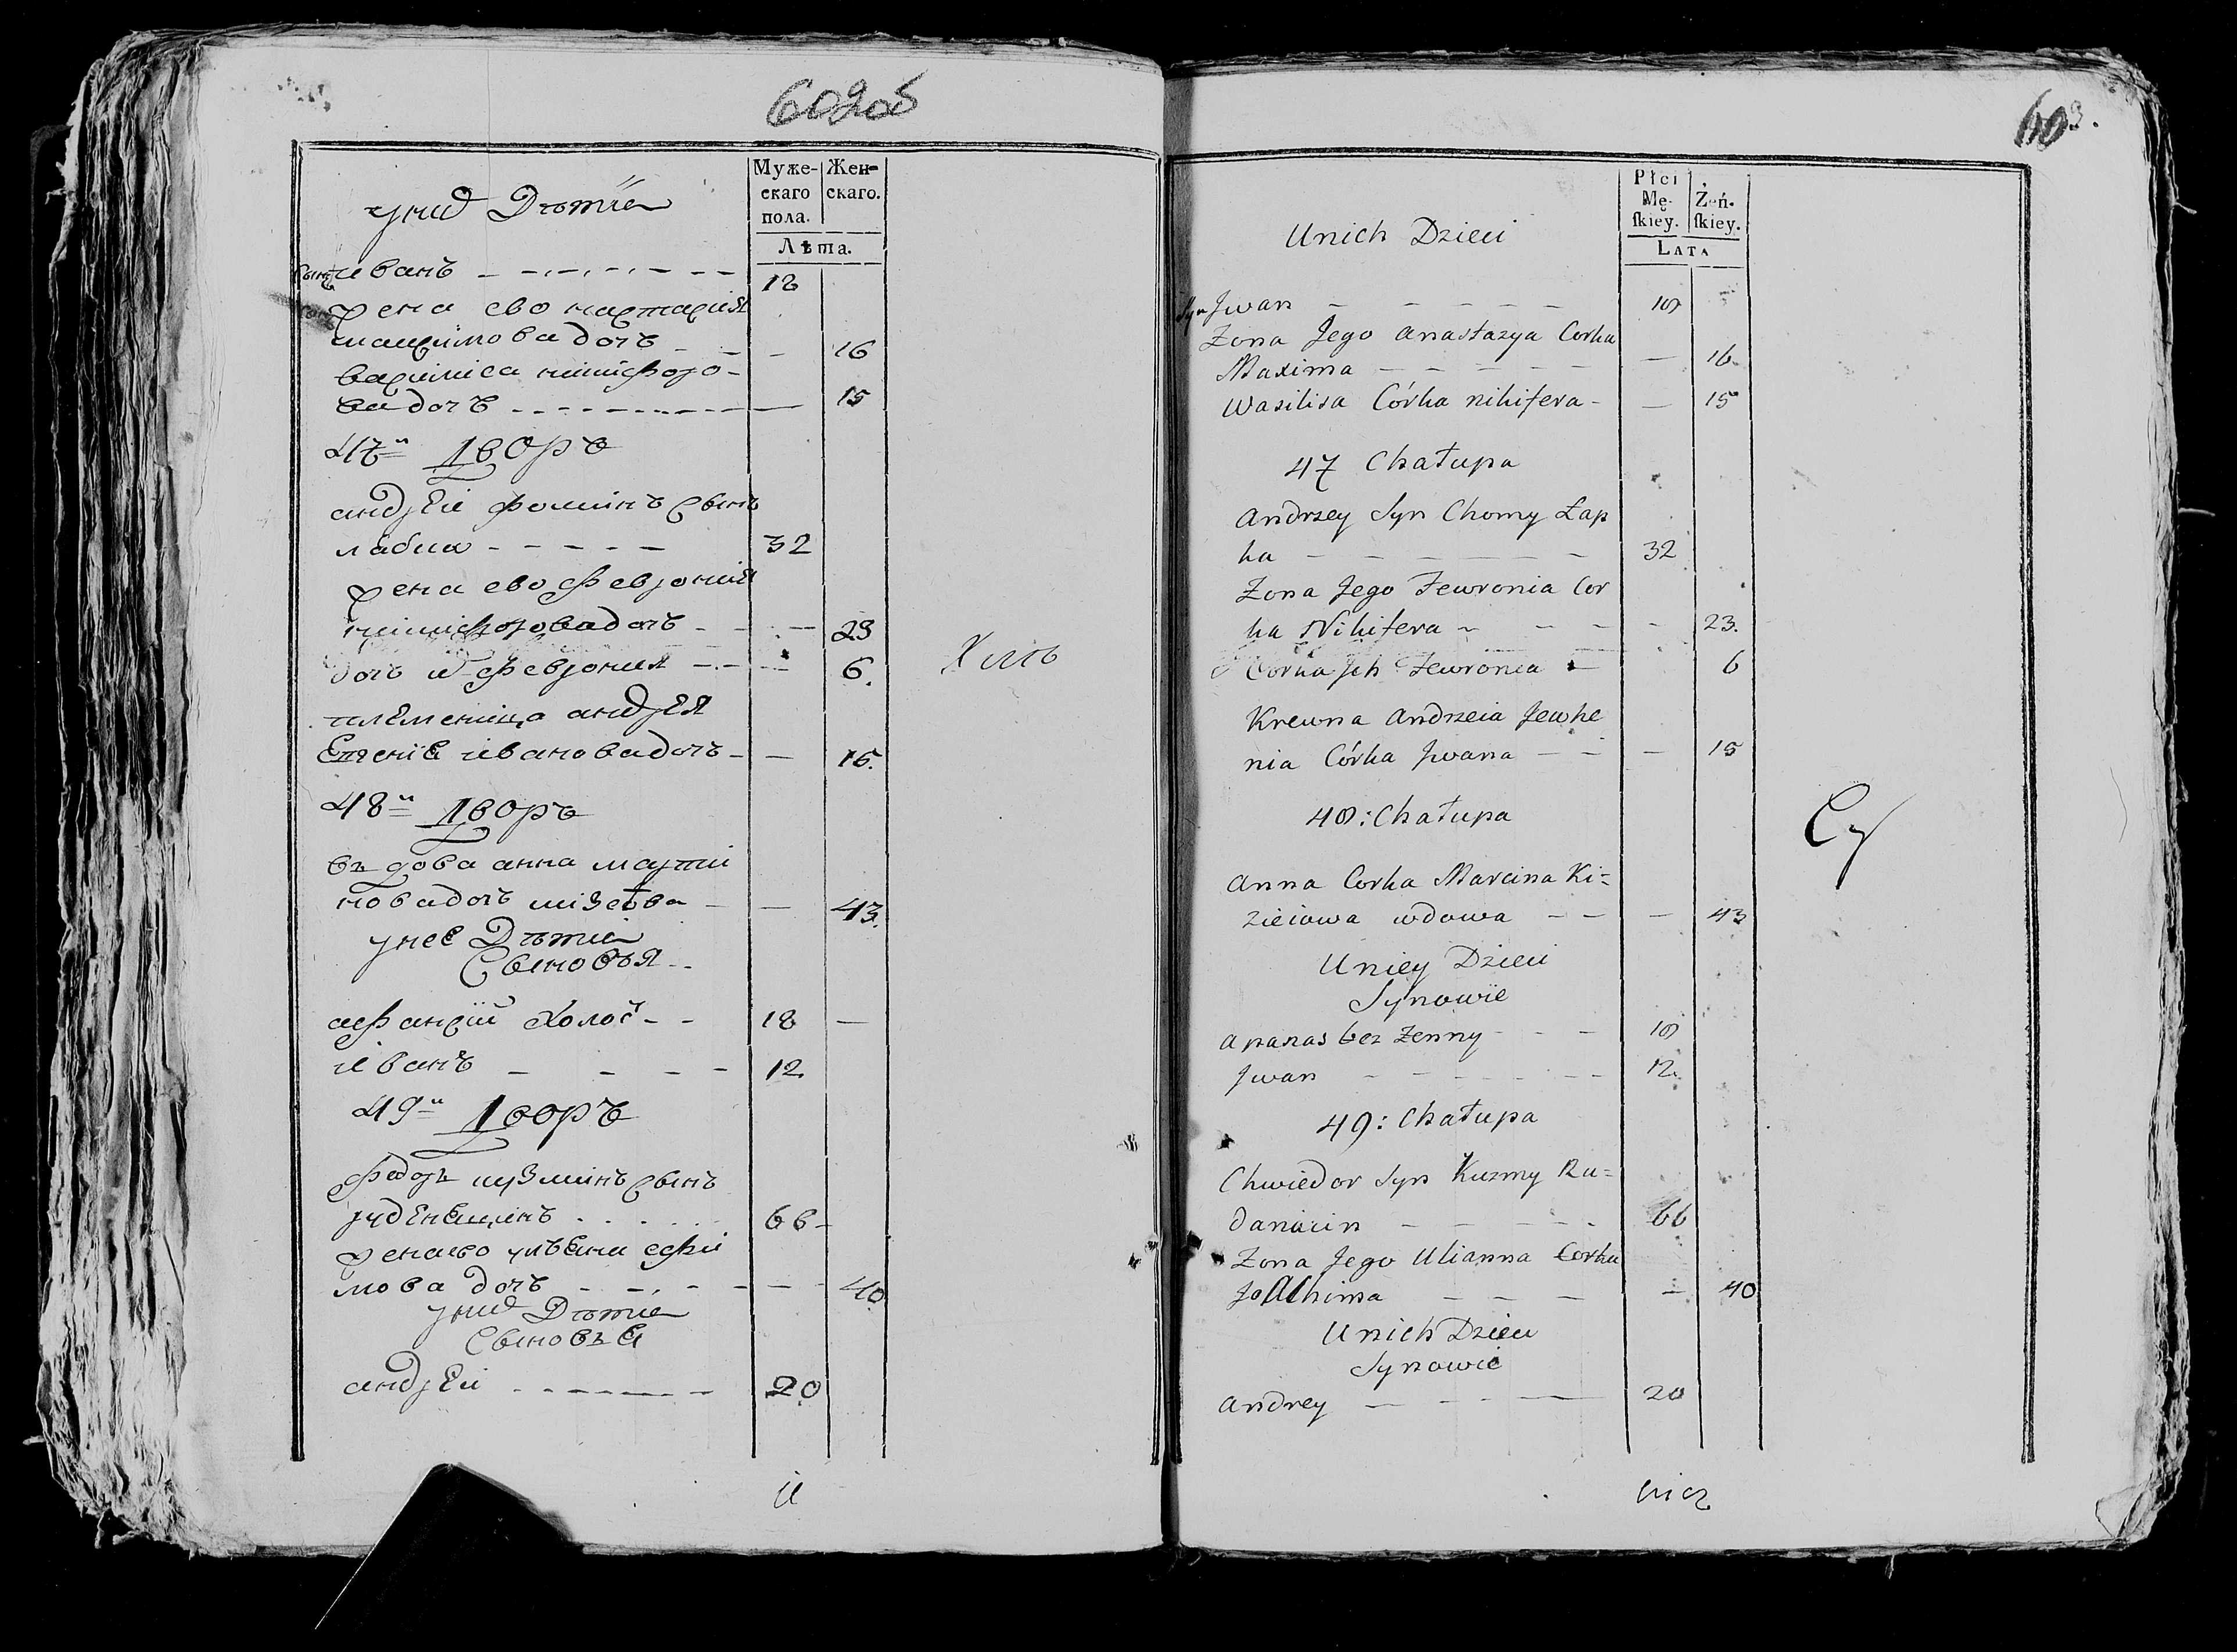 602об
Муже-
скаго
пола.
Жен-
скаго.
Лѣта.
у них Дѣти
сынъ иванъ 18
жена ево настасия
максимова дочь 16
василиса никифоро-
ва дочь 15
47й Дворъ
андрей фоминъ сынъ
лабка 32
жена ево феврония
никифорова дочь 23
дочь их феврония 6.
племеница андрея
иванова дочь 15.
48й Дворъ
въдова анна марти
нова дочь 43.
у нее Дѣти
Сыновья
афансий холос 18
иванъ 12
49й Дворъ
федоръ кузминъ сынъ
66
жена ево ульяна ефи
мова дочь 40
у них Дѣти
Сыновья
андрей 20
и
603.
Płci
Mę-
ſkiey.
Żeń-
ſkiey.
LATA
Unich Dzieci
Syn Jwan 18
Zona Jego Anastazya Corka
Maxima 16
Wasilisa Córka nikifera 15
47 Chałupa
Andrzey Syn Chomy Łap
ka 32
Zona Jego Fewronia Cor
ka Nikifera 23.
Corka Jch Fewronia 6
Krewna Andrzeia Jewhe
nia Córka Jwana 15
48: Chałupa
Anna Corka Marcina Ki=
zieiowa wdowa 43
Uniey Dzieci
Synowie
Apanas bez Zenny 18
Jwan 12.
49: Chałupa
Chwiedor Syn Kuzmy Ru=
66
Zona Jego Ulianna Corka
Joachima 40
Unich Dzieci
Synowie
Andrey 20